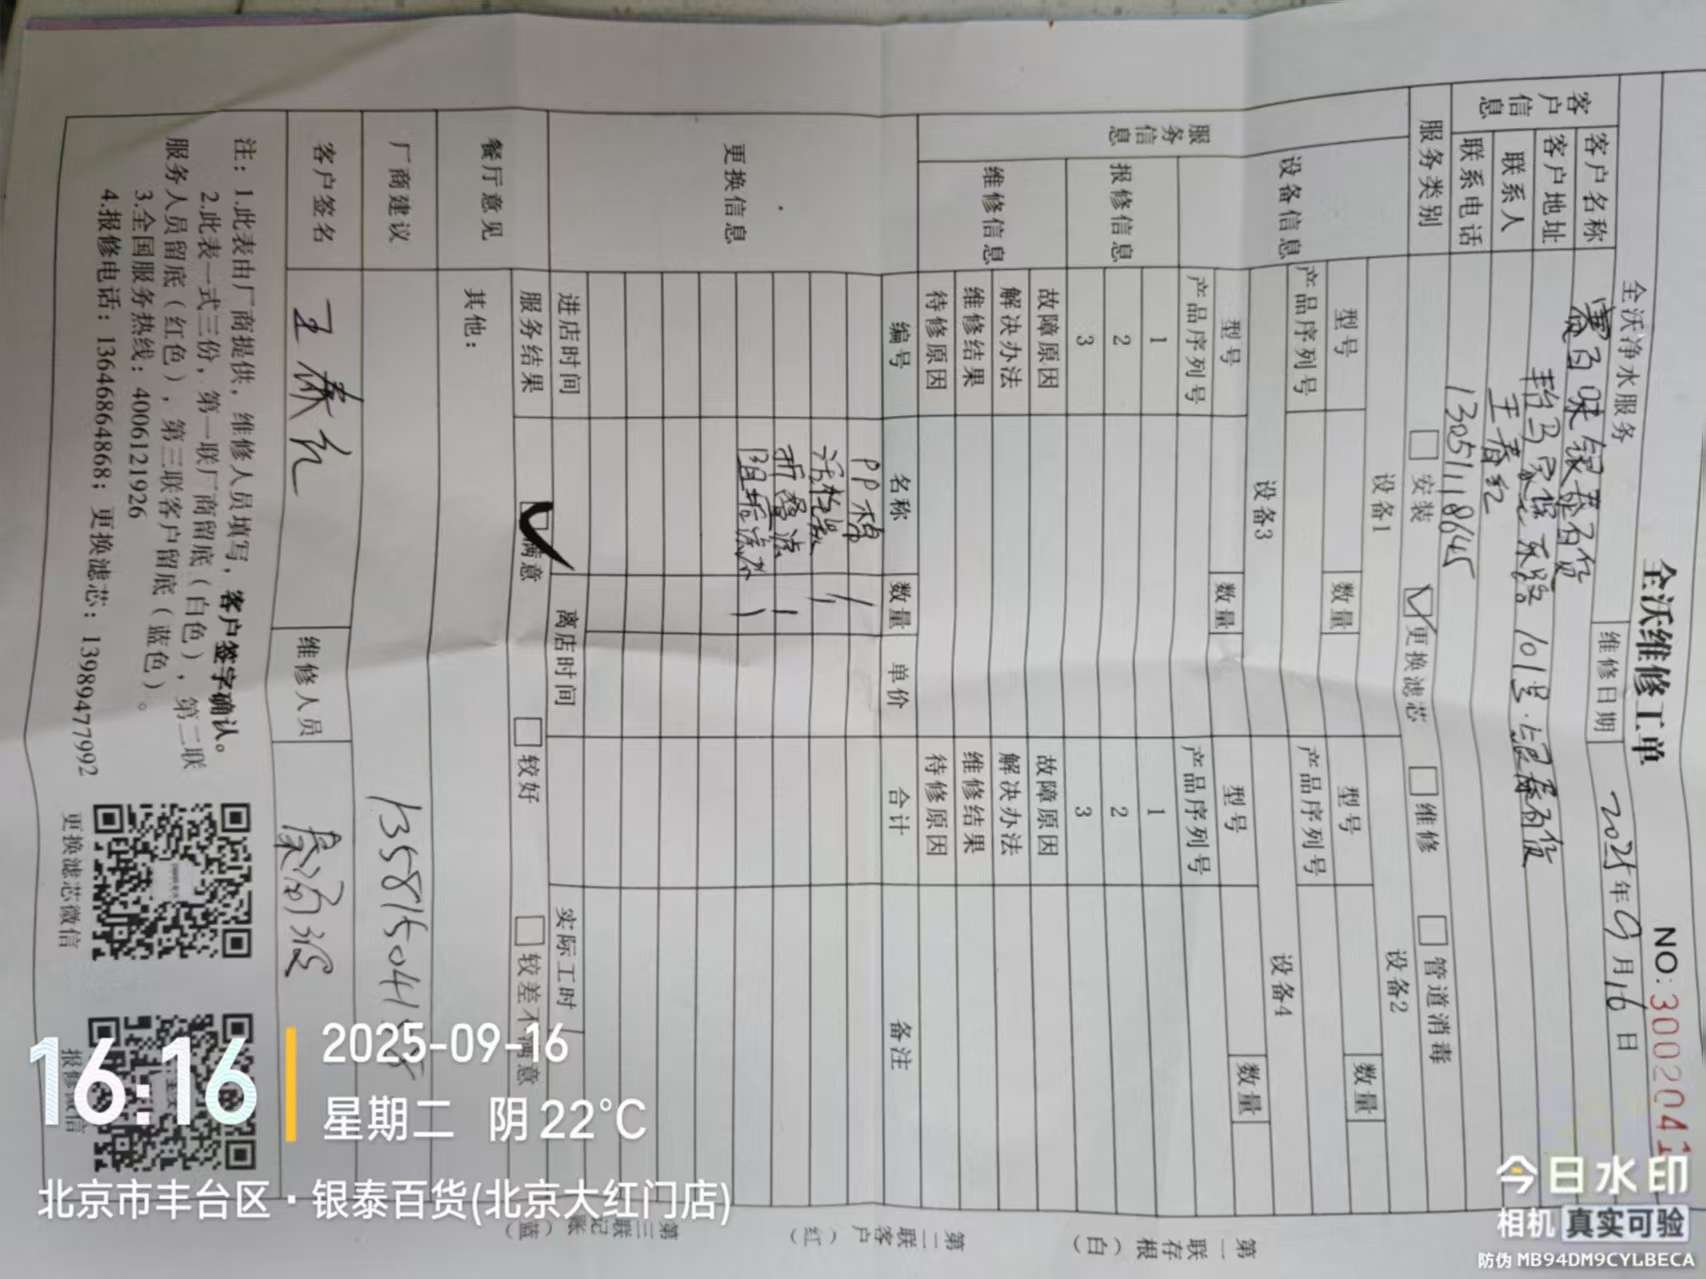 全沃维修工单
NO: 30020041
全沃净水服务
维修日期 2025年9月16日
客户信息
客户名称 银泰百货
客户地址 101号 银泰百货
联系人 王春红
联系电话 13051118645
服务类别 安装 更换滤芯 维修 管道消毒
服务信息
设备信息
设备1 设备2
型号 数量 型号 数量
产品序列号 产品序列号
设备3 设备4
型号 数量 型号 数量
产品序列号 产品序列号
报修信息
1 1
2 2
3 3
维修信息
故障原因 故障原因
解决办法 解决办法
维修结果 维修结果
待修原因 待修原因
更换信息
编号 名称 数量 单价 合计 备注
PP棉 1
活性炭 1
折叠滤 1
阻垢滤芯 1
进店时间 离店时间 实际工时
餐厅意见
服务结果 满意 较好 较差不满意
其他：
厂商建议
客户签名 王春红 维修人员
注：1.此表由厂商提供，维修人员填写，客户签字确认。
2.此表一式三份，第一联厂商留底（白色），第二联
服务人员留底（红色），第三联客户留底（蓝色）。
3.全国服务热线：4006121926
4.报修电话：13646864868；更换滤芯：13989477992
更换滤芯微信
报修微信
第一联存根（白）
第二联客户（红）
第三联记账（蓝）
16:16
2025-09-16
星期二 阴 22°C
北京市丰台区·银泰百货(北京大红门店)
今日水印
相机 真实可验
防伪 MB94DM9CYLBECA